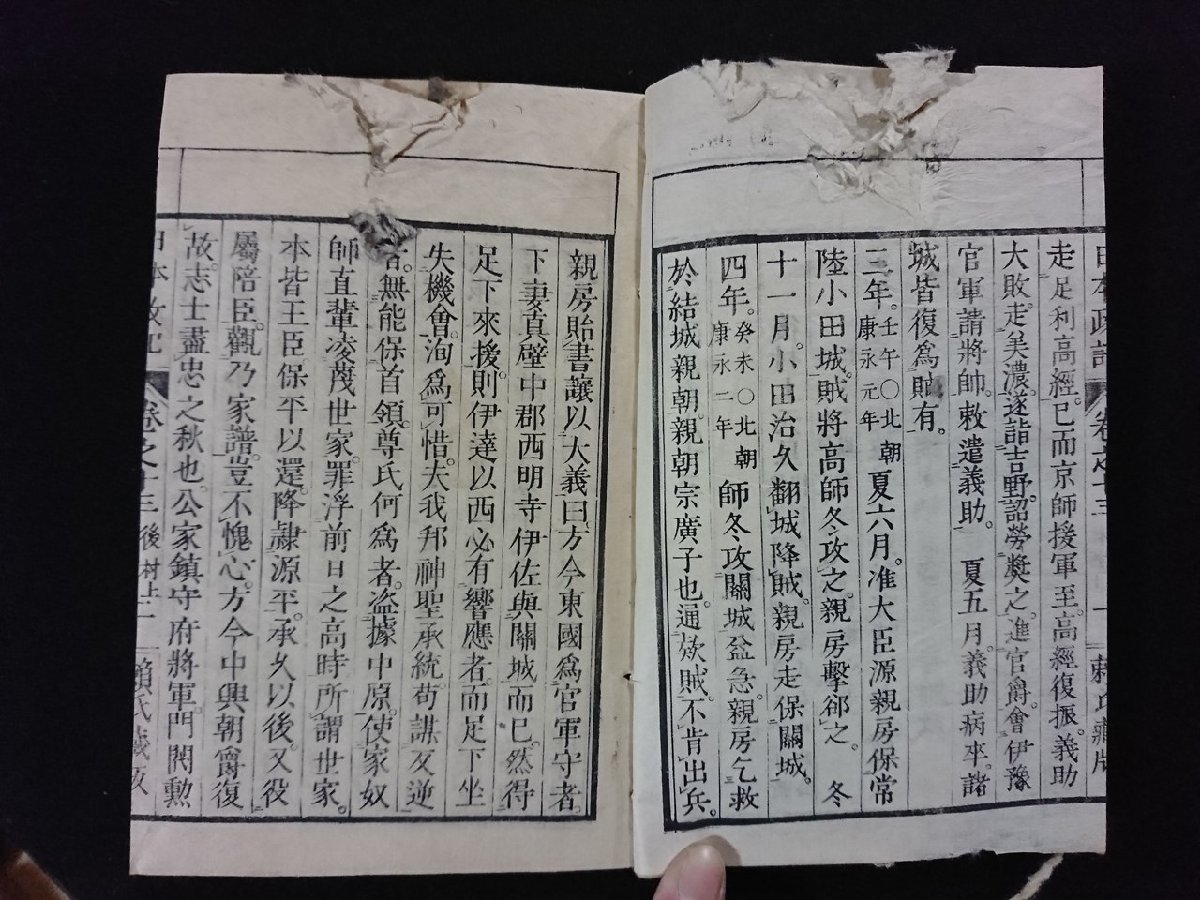 日本政記 卷之十三 十一 賴氏藏版
走足利高經。已而京師援軍至。高經復振。義助
大敗。走美濃。遂詣吉野。詔勞奬之。進官爵。會伊豫
官軍請將帥。敕遣義助。 夏五月。義助病卒。諸
城皆復爲賊有。
三年。壬午〇北朝康永元年 夏六月。准大臣源親房保常
陸小田城。賊將高師冬攻之。親房擊郤之。 冬
十一月。小田治久翻城降賊。親房走保關城。
四年。癸未〇北朝康永二年 師冬攻關城益急。親房乞救
於結城親朝。親朝宗廣子也。通欵賊。不肯出兵。
親房貽書讓以大義曰。方今東國爲官軍守者。
下妻眞壁中郡西明寺伊佐與關城而已。然得
足下來援。則伊達以西必有響應者。而足下坐
失機會。洵爲可惜。夫我邦神聖承統。苟謀反逆
者。無能保首領。尊氏何爲者。盜據中原。使家奴
師直輩凌蔑世家。罪浮前日之高時。所謂世家。
本皆王臣。保平以還。降隷源平。承久以後。又役
屬陪臣。觀乃家譜。豈不愧心。方今中興。朝爵復
故。志士盡忠之秋也。公家鎮守府將軍。門閥勲
日本政記 卷之十三 後村上 賴氏藏版